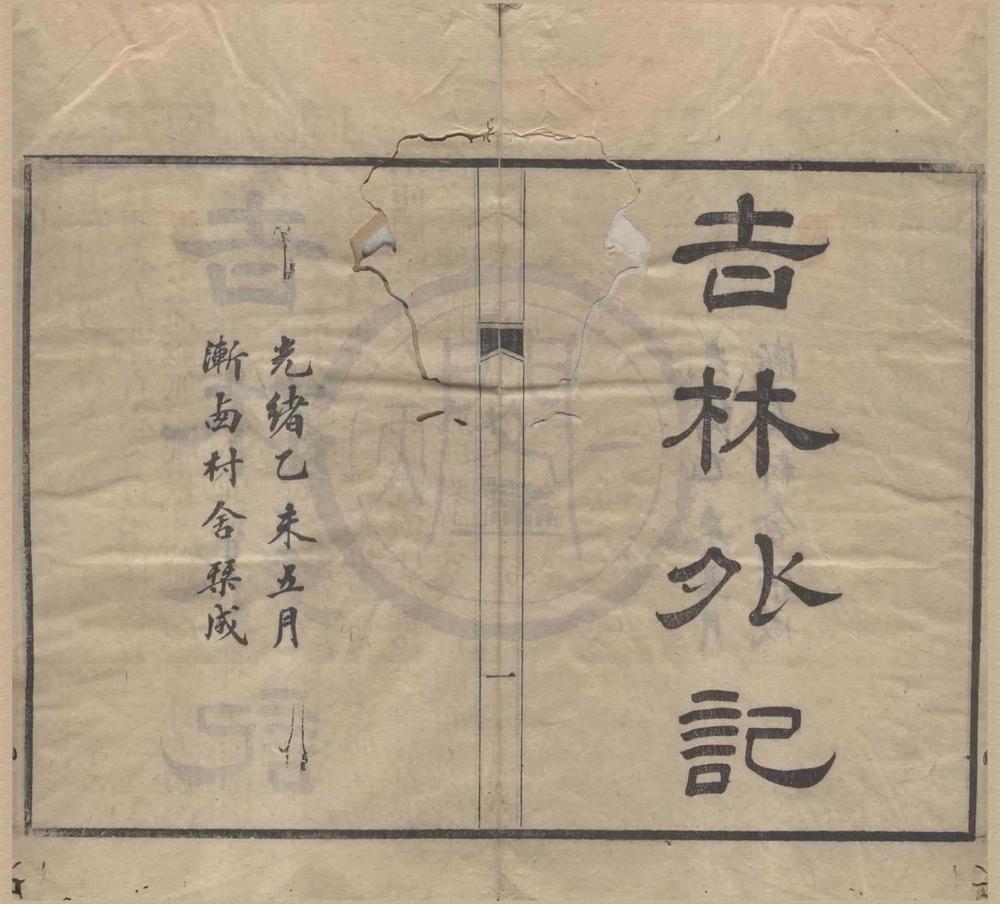 吉林外記
一
光緒乙未五月
漸卣村舍琹成